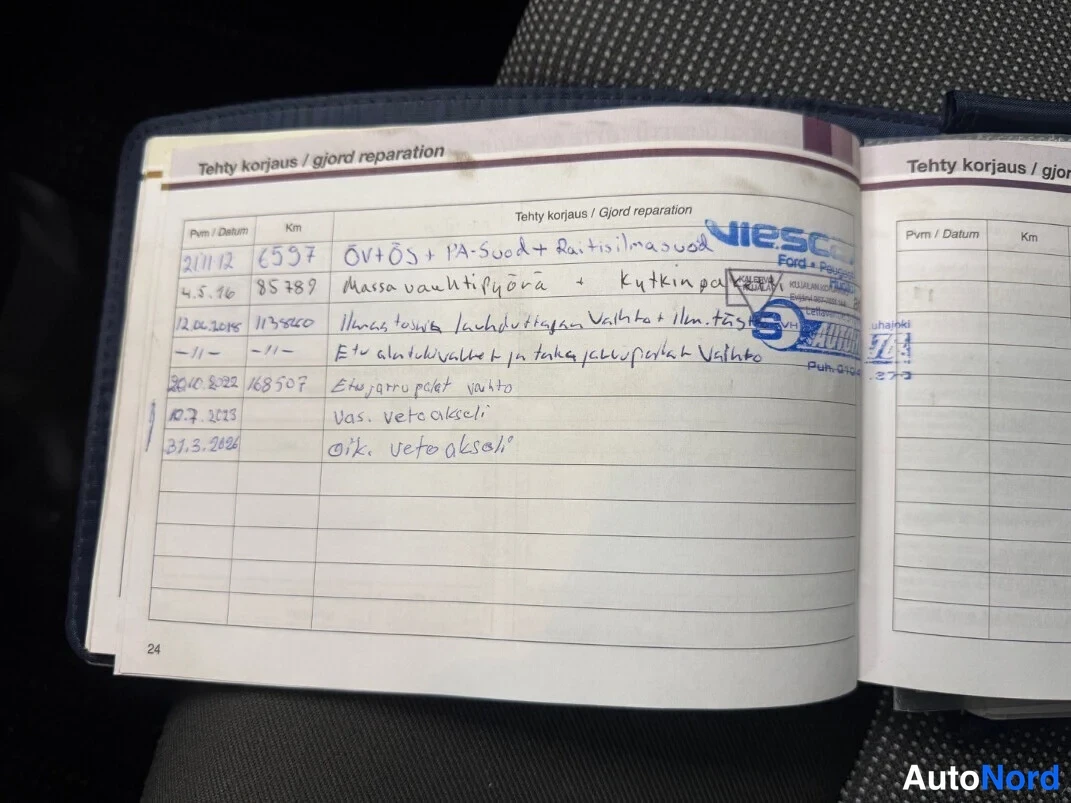 Tehty korjaus / gjord reparation
Pvm / Datum Km Tehty korjaus / Gjord reparation
21.11.12 6597 ÖV+ÖS + PA-Suod + Raitisilmasuod
4.5.16 85789 Massa vauhtipyörä + Kytkin
12.06.2018 lauhduttajan vaihto + ilm.
-11- -11- Etu alatukivarret ja taka jarrupalat Vaihto
20.10.2022 168507 Etujarrupalat vaihto
10.7.2023 Vas. vetoakseli
31.3.2026 Oik. vetoakseli
Ford • Peugeot
KALERVO
KUJALA
Puh.
24
Tehty korjaus / gjor
Pvm / Datum Km
uhajoki
AutoNord